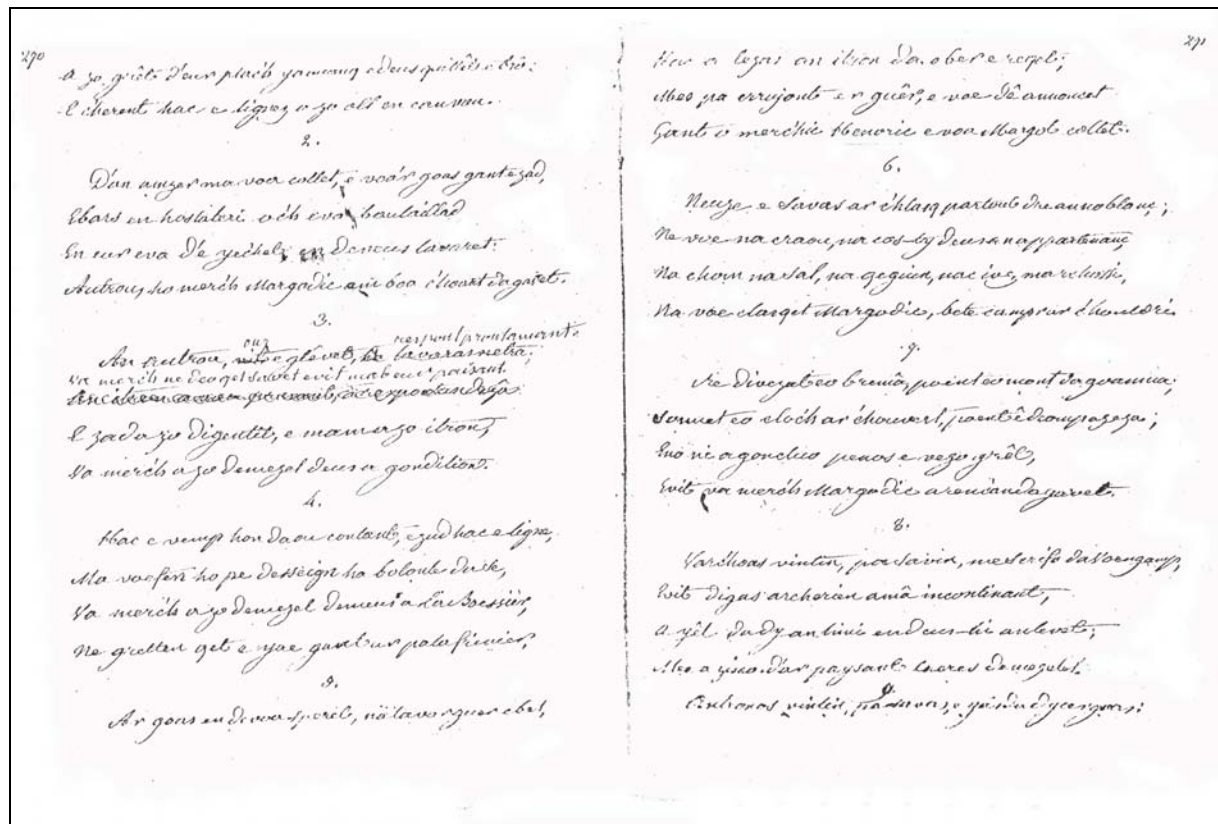 290
a zo grêt d'eur plac'h yaouang e deus quittêt e bro:
E c'herent hac e lignez a zo oll en canvou.
2.
D'an amzer ma voa collet, e voa'r goas gant e zad,
Ebars en hostaleri och eva boutaillad
En eur eva d'e yec'het, en deveus lavaret:
Autrou, ho merc'h Margodic am boa c'hoant da gavet.
3.
An Autrou, p'e glêvet, respont prontamant
Va merc'h ne deo get savet evit mab eur paisant.
E zad a zo digentil, e mam a zo itron,
Va merc'h a zo demezel deus a gondition.
4.
Hac e vemp hon daou contant, e zud hac e ligne,
Ma voefen ho pe desseign ha bolonte da Doue,
Va merc'h a zo demezel demeus a Boessier,
Ne gretten get e yae gant ur palafrinier,
5.
Ar goas en devoa speret, na lavor guer ebet,
291
Hac a lezas an itron da ober e reget;
Mes pa errujont er guêr, e voe dê annoncet
Gant o merc'hic Henoric e voa Margot collet.
6.
Neuze e savas ar c'hlasq partout dre an noblanç;
Ne voe na craou, na cos-ty deus an appartenanç
Na chom na sal, na geguin, nac ivez marchossi,
Na voe clasqet Margodic, bete camp ar c'houldri.
7.
Re divezat eo bremâ, poent eo mont da goania;
Sonnet eo cloch ar c'houvert, poent ê deomp azeza;
Eno ni a gonclüo penos e vezo grêt,
Evit va merc'h Margodic a rencan da gavet.
8.
Varc'hoas vintin, pa savin, me scrifo da Voengamp,
Evit digas archerien amâ incontinant,
a yêl da dy an hini en deus-hi anlevet;
Mes a zisco d'ar paysant laeres demezelet.
9.
Antronos vintin, pa savas, e yas da dy e c'hoar: